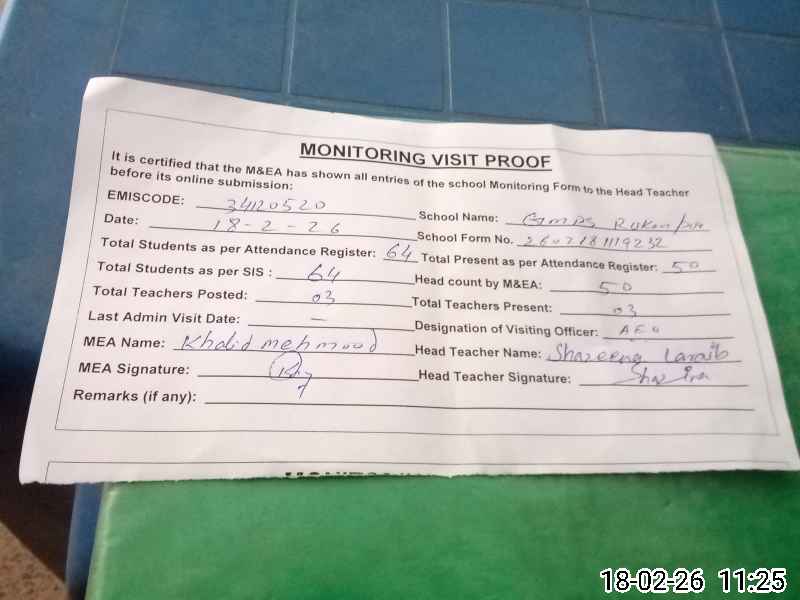 MONITORING VISIT PROOF
It is certified that the M&EA has shown all entries of the school Monitoring Form to the Head Teacher
before its online submission:
EMISCODE: 34120520 School Name: GMPS Rukanpur
Date: 18-2-26 School Form No. 2602181119232
Total Students as per Attendance Register: 64 Total Present as per Attendance Register: 50
Total Students as per SIS : 64 Head count by M&EA: 50
Total Teachers Posted: 03 Total Teachers Present: 03
Last Admin Visit Date: — Designation of Visiting Officer: AEO
MEA Name: Khalid mehmood Head Teacher Name: Shazeena Laraib
MEA Signature: Head Teacher Signature:
Remarks (if any):
18-02-26 11:25